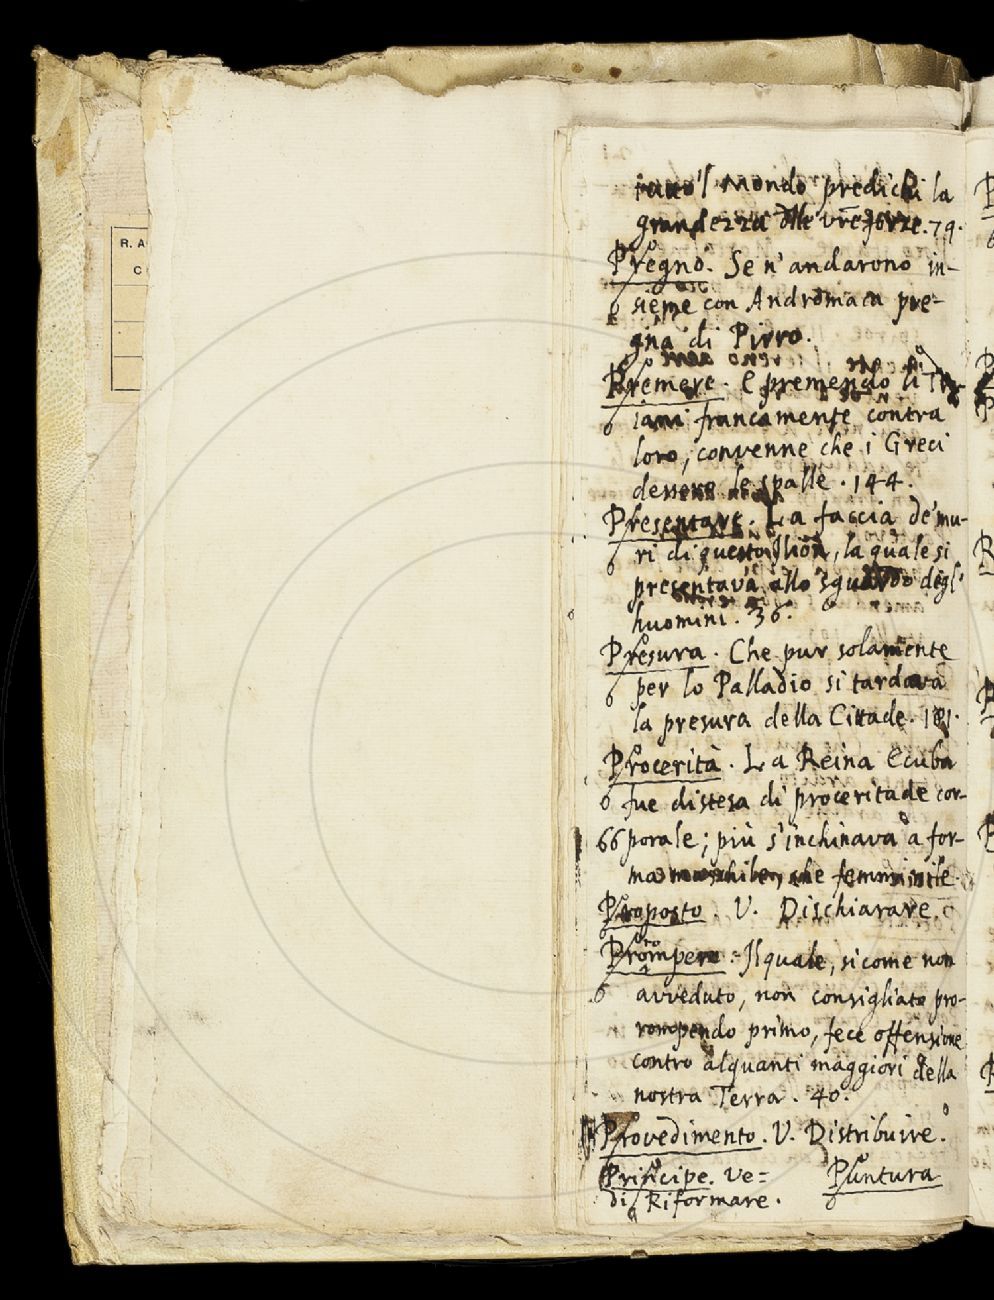 R. A
C
tutto 'l Mondo predichi la
grandezza dlle vre forze. 79.
Pregno. Se n'andarono in-
sieme con Andromaca pre-
gna di Pirro.
Premere. E premendo li
francamente contra
loro, convenne che i Greci
dessero le spalle. 144.
Presentare. La faccia de' mu-
ri di questo Ilion, la quale si
presentava allo sguardo degl'
huomini. 36.
Presura. Che pur solamente
per lo Palladio si tardava
la presura della Cittade. 181.
Procerità. La Reina Ecuba
fue distesa di proceritade cor-
66 porale; più s'inchinava a for-
ma maschile, che femminile.
Proposto. V. Dischiarare.
Prompere. Il quale, sicome non
avveduto, non consigliato pro-
rompendo primo, fece offensione
contro alquanti maggiori della
nostra Terra. 40.
Provedimento. V. Distribuire.
Principe. Ve= Puntura
di Riformare.